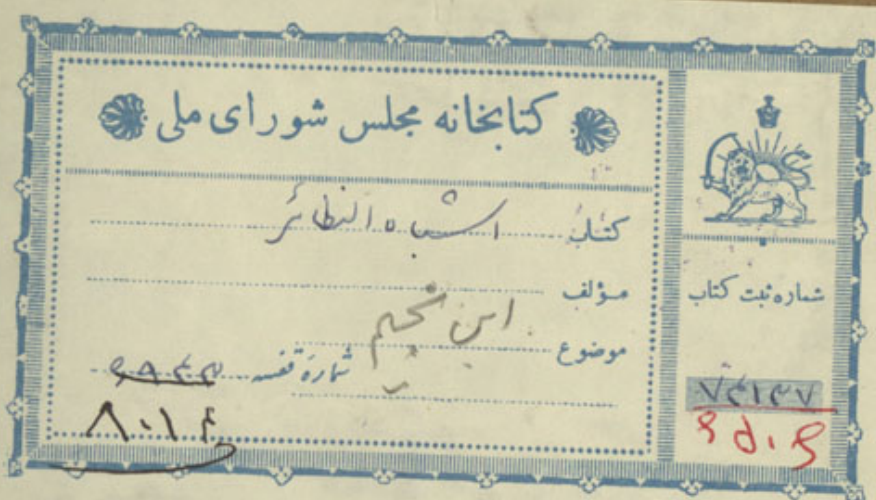 کتابخانه مجلس شورای ملی
کتاب اشباه النظائر
مؤلف ابن نجیم
موضوع
شمارهٔ قفسه
۸۰۱۴
شماره ثبت کتاب
۷۴۱۳۷